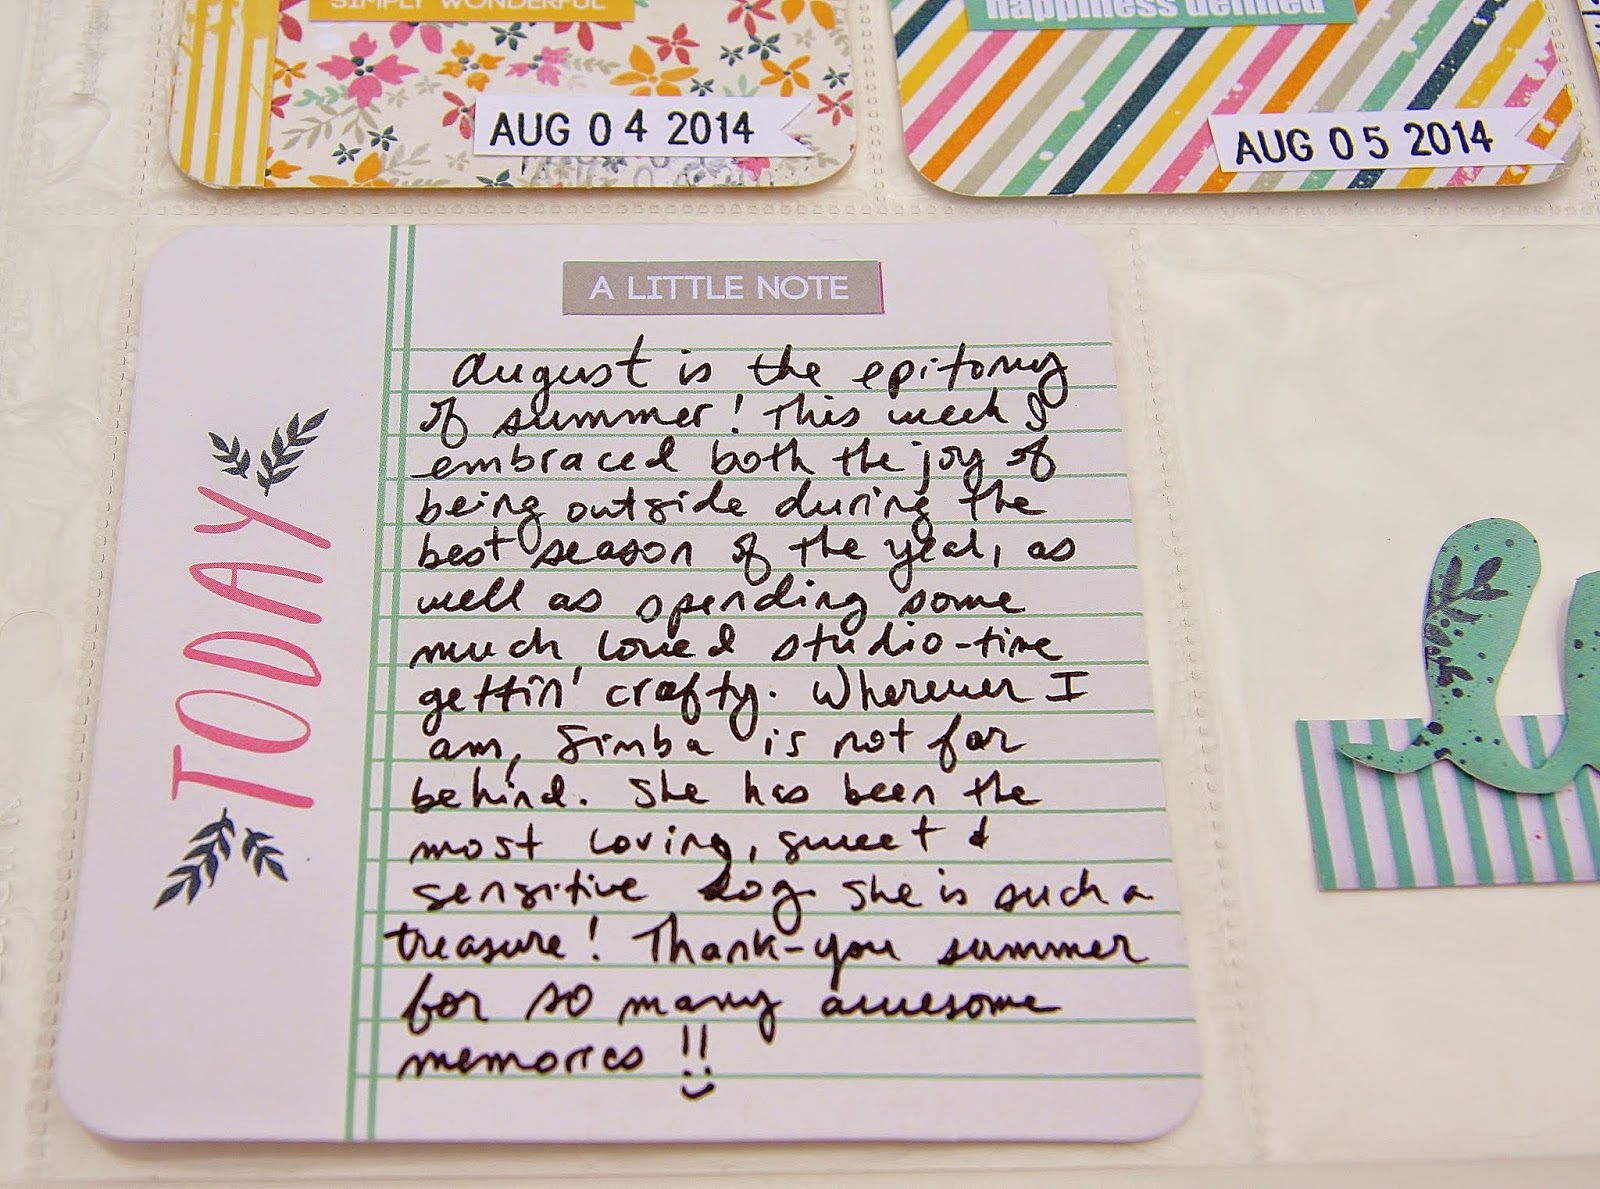 SIMPLY WONDERFUL
happiness defined
AUG 04 2014
AUG 05 2014
A LITTLE NOTE
TODAY
August is the epitomy
of summer! This week I
embraced both the joy of
being outside during the
best season of the year, as
well as spending some
much loved studio-time
gettin' crafty. Wherever I
am, Simba is not far
behind. She has been the
most loving, sweet &
sensitive dog. She is such a
treasure! Thank-you summer
for so many awesome
memories !!